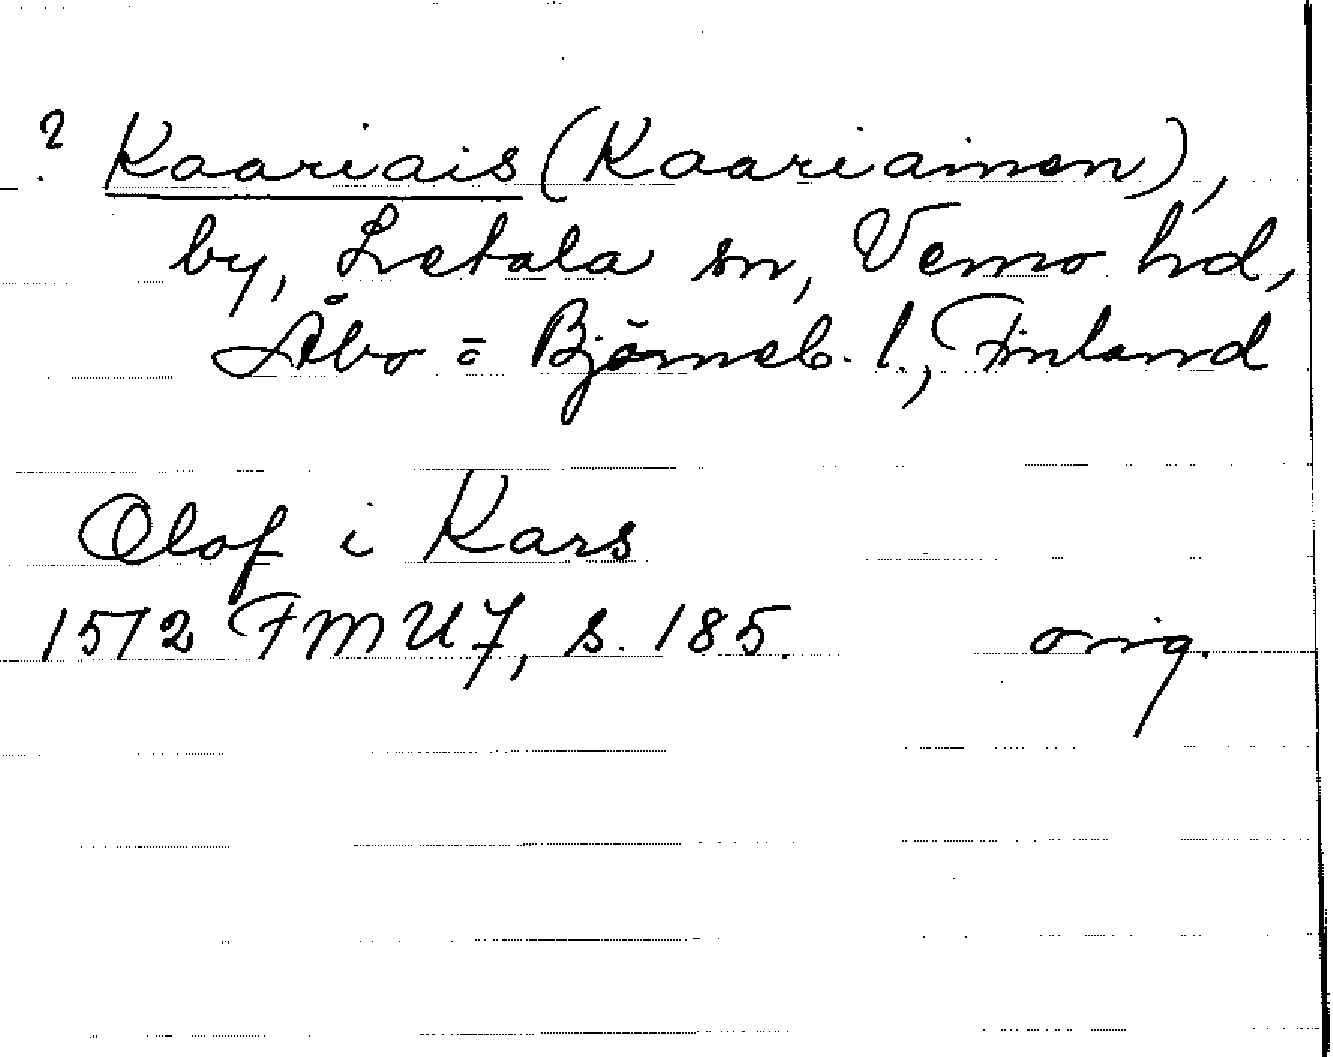 ? Kaariais (Kaariainen),
by, Letala sn, Vemo hd,
Åbo = Björneb. l., Finland
Olof i Kars
1572 FMU 7, s. 185. orig.